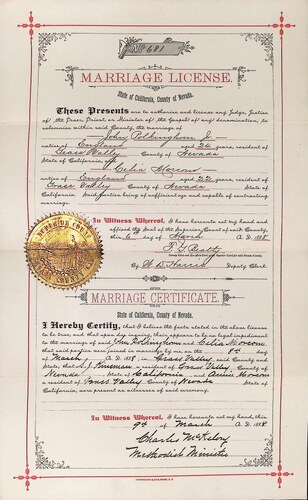 No. 681
MARRIAGE LICENSE.
State of California, County of Nevada.
These Presents are to authorize and license any Judge, Justice of
the Peace, Priest, or Minister of the Gospel of any denomination, to
solemnize within said County, the marriage of
John Polkinghorn Jr
native of England aged 24 years, resident of
Grass Valley County of Nevada
State of California, and
Celia Moreom
native of England aged 22 years, resident of
Grass Valley County of Nevada State of
California. Said parties being of sufficient age and capable of contracting
marriage.
In Witness Whereof, I have hereunto set my hand and
affixed the Seal of the Superior Court of said County, this
6th day of March A.D. 1888
F. G. Beatty
By W. D. Harris Deputy Clerk
SUPERIOR COURT
MARRIAGE CERTIFICATE.
State of California, County of Nevada.
I Hereby Certify, that I believe the facts stated in the above license
to be true, and that upon due inquiry there appears to be no legal impediment
to the marriage of said John Polkinghorn and Celia Moreom
that said parties were joined in marriage by me, on the 8th day of
March, A.D. 1888, in Grass Valley, said County and
State; that a resident of Grass Valley, County of
Nevada State of California and Annie Moreom
a resident of Grass Valley, County of Nevada State of
California, are present as witnesses of said ceremony.
In Witness Whereof, I have hereunto set my hand, this
9th of March A.D. 1888
Charles McKelvey
Methodist Minister